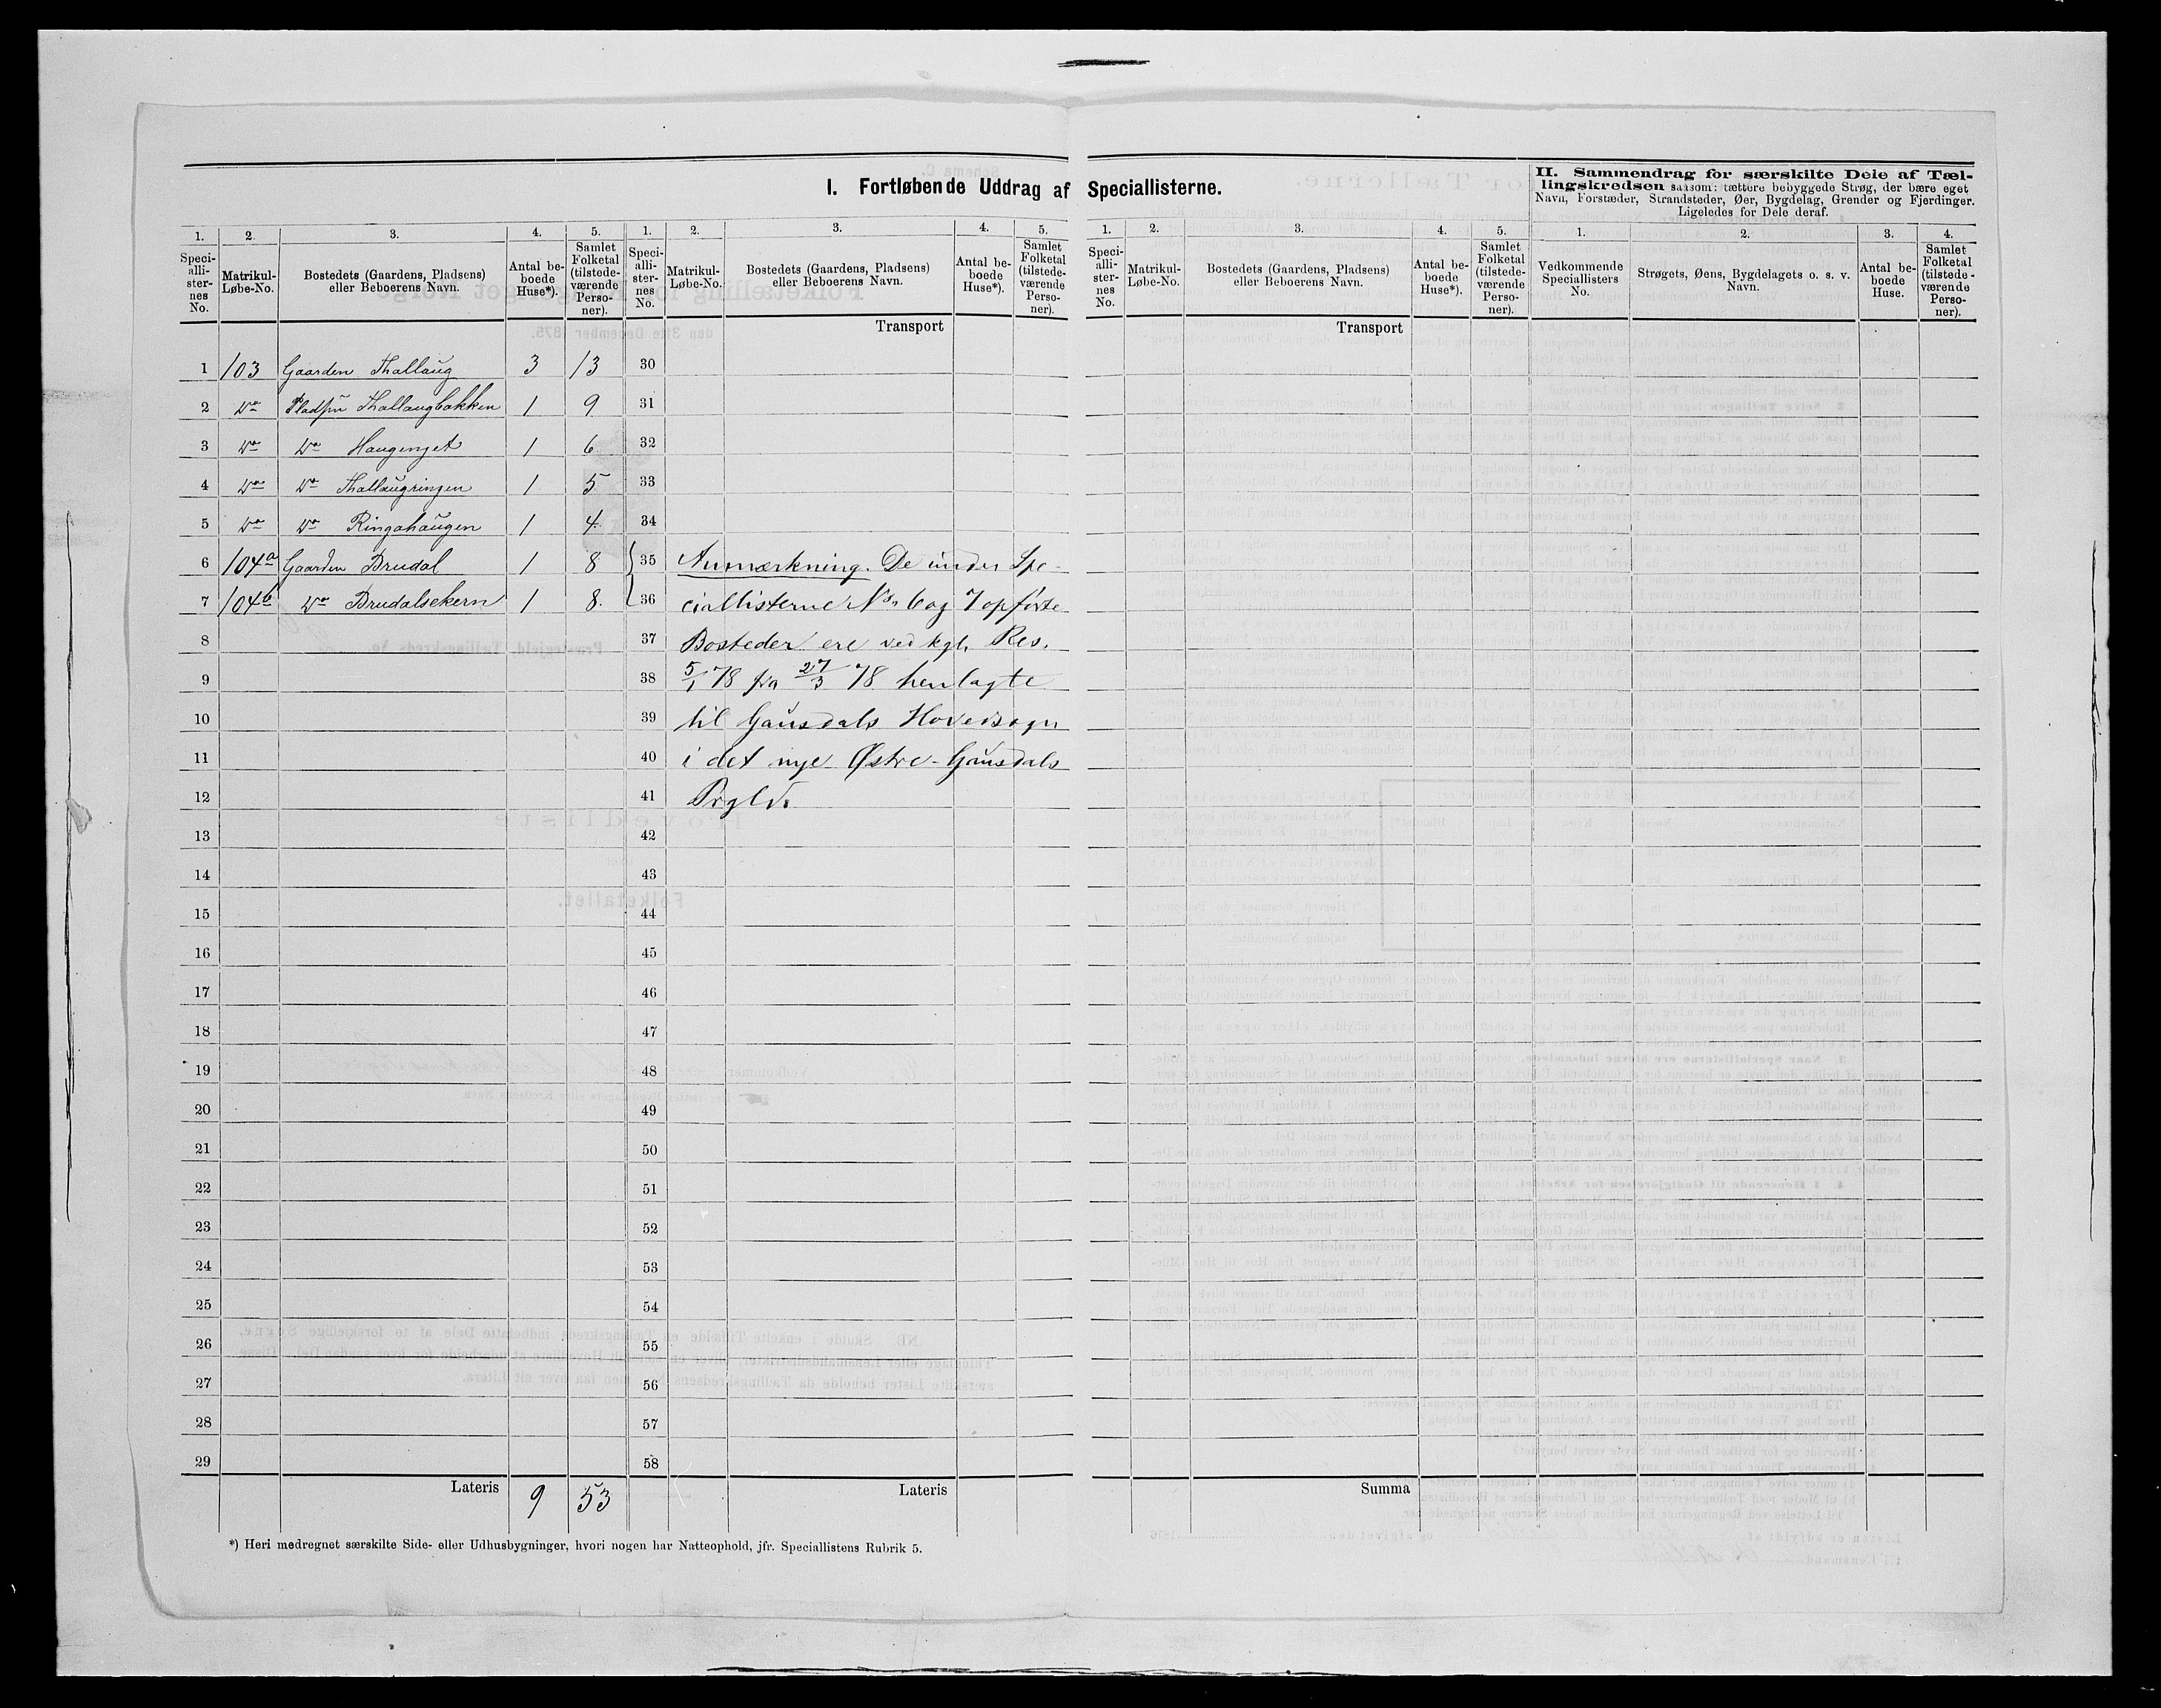 I. Fortløbende Uddrag af Speciallisterne.
II. Sammendrag for særskilte Dele af Tæl-
lingskredsen saasom: tættere bebyggede Strøg, der bære eget
Navn, Forstæder, Strandsteder, Øer, Bygdelag, Grender og Fjerdinger.
Ligeledes for Dele deraf.
1. 2. 3. 4. 5. 1. 2. 3. 4. 5. 1. 2. 3. 4. 5. 1. 2. 3. 4.
Speci-alli-ster-nes No. Matrikul-Løbe-No. Bostedets (Gaardens, Pladsens) eller Beboerens Navn. Antal be-boede Huse*). Samlet Folketal (tilstede-værende Perso-ner).
Speci-alli-ster-nes No. Matrikul-Løbe-No. Bostedets (Gaardens, Pladsens) eller Beboerens Navn. Antal be-boede Huse*). Samlet Folketal (tilstede-værende Perso-ner).
Speci-alli-ster-nes No. Matrikul-Løbe-No. Bostedets (Gaardens, Pladsens) eller Beboerens Navn. Antal be-boede Huse*). Samlet Folketal (tilstede-værende Perso-ner).
Vedkommende Speciallisters No. Strøgets, Øens, Bygdelagets o. s. v. Navn. Antal be-boede Huse. Samlet Folketal (tilstede-værende Perso-ner).
Transport Transport
1 103 Gaarden Thallaug 3 13 30
2 Do Pladsen Thallaugbakken 1 9 31
3 Do Do Haugenget 1 6 32
4 Do Do Thallaugringen 1 5 33
5 Do Do Ringahaugen 1 4 34
6 104a Gaarden Brudal 1 8 35 Anmærkning. De under Spe-
7 104b Do Brudalsekern 1 8. 36 ciallisterne No 6 og 7 opførte
8 37 Bosteder ere ved kgl. Res.
9 38 5/1 78 fra 27/3 78 henlagte
10 39 til Gausdals Hovedsogn
11 40 i det nye Østre-Gausdals
12 41 Prgld.
13 42
14 43
15 44
16 45
17 46
18 47
19 48
20 49
21 50
22 51
23 52
24 53
25 54
26 55
27 56
28 57
29 58
Lateris 9 53 Lateris Summa
*) Heri medregnet særskilte Side- eller Udhusbygninger, hvori nogen har Natteophold, jfr. Speciallistens Rubrik 5.